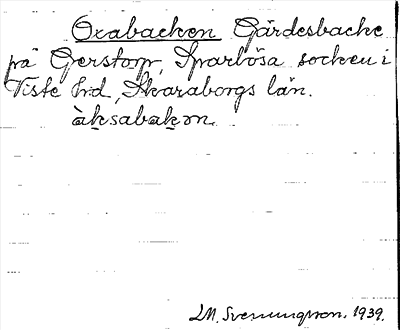 Oxabacken Gärdesbacke
på Gerstorp, Sparlösa socken i
Viste hd, Skaraborgs län.
àksabakən.
LM. Svenungsson. 1939.